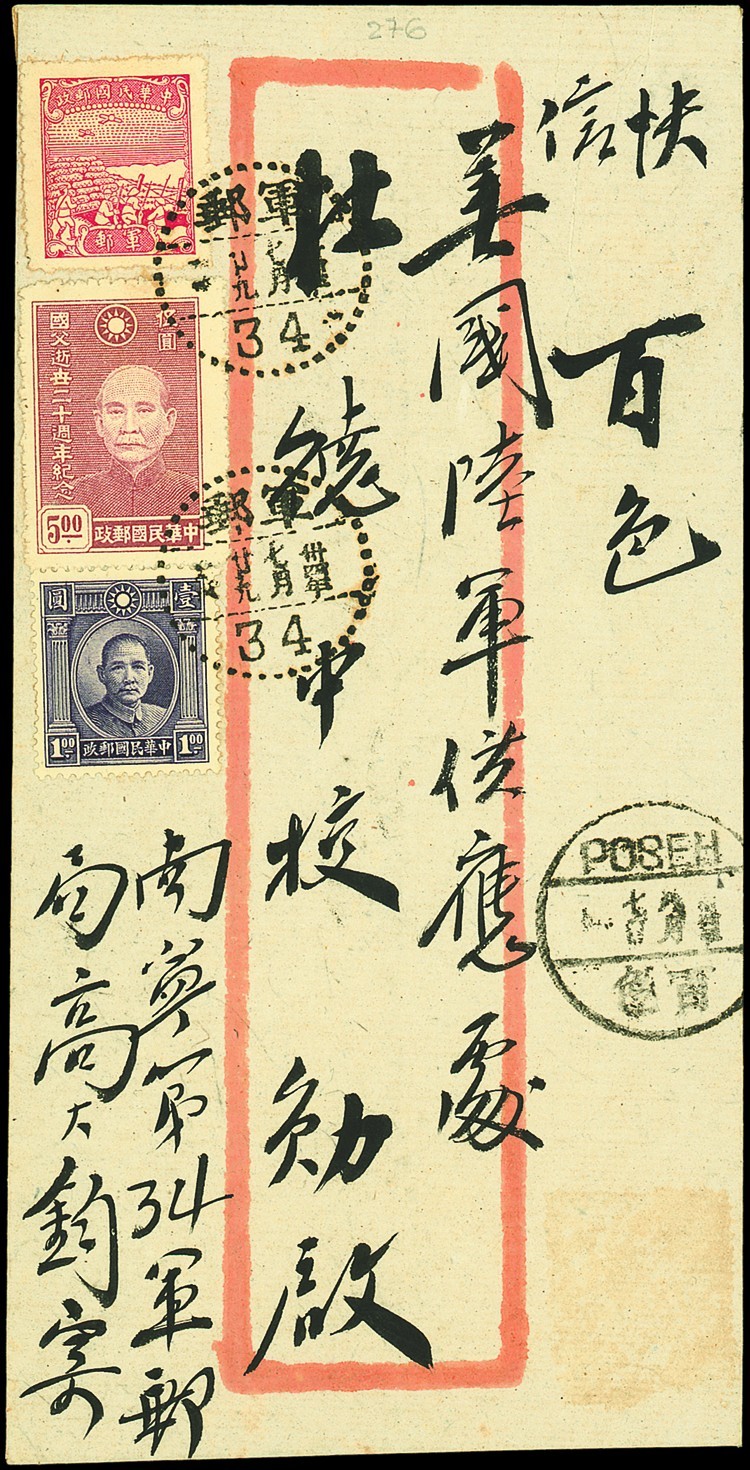 276
快信
百色
美國陸軍供應處
杜饒中校勛啟
南寧第34軍郵
局高大鈞寄
中華民國郵政
軍郵
伍圓
國父逝世二十週年紀念
5.00
中華民國郵政
壹圓
1.00 中華民國郵政 1.00
軍郵
七月
廿九
34
軍郵
卅四年
七月
廿九
34
POSEH
百色